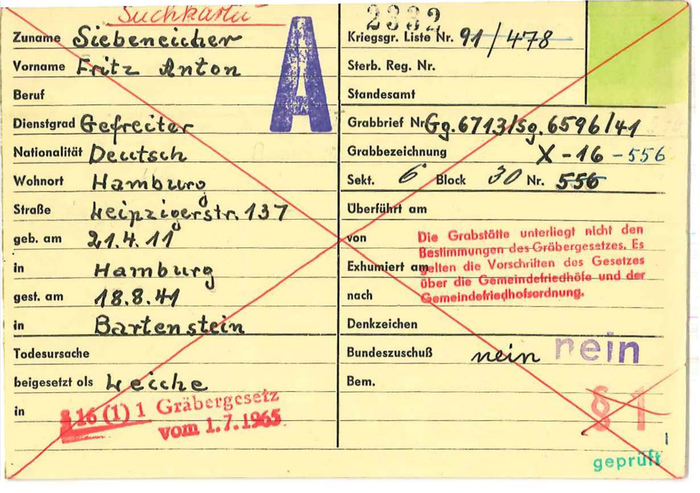 Suchkartei
Zuname Siebeneicher
Vorname Fritz Anton
Beruf
Dienstgrad Gefreiter
Nationalität Deutsch
Wohnort Hamburg
Straße Leipzigerstr. 137
geb. am 21.4.11
in Hamburg
gest. am 18.8.41
in Bartenstein
Todesursache
beigesetzt als Leiche
in
§ 16 (1) 1 Gräbergesetz
vom 1.7.1965
A
2332
Kriegsgr. Liste Nr. 91/478
Sterb. Reg. Nr.
Standesamt
Grabbrief Nr Gg.6713/Sg.6596/41
Grabbezeichnung X-16-556
Sekt. 6 Block 30 Nr. 556
Überführt am
von
Exhumiert am
nach
Die Grabstätte unterliegt nicht den
Bestimmungen des Gräbergesetzes. Es
gelten die Vorschriften des Gesetzes
über die Gemeindefriedhöfe und der
Gemeindefriedhofsordnung.
Denkzeichen
Bundeszuschuß nein nein
Bem.
§ 1
geprüft